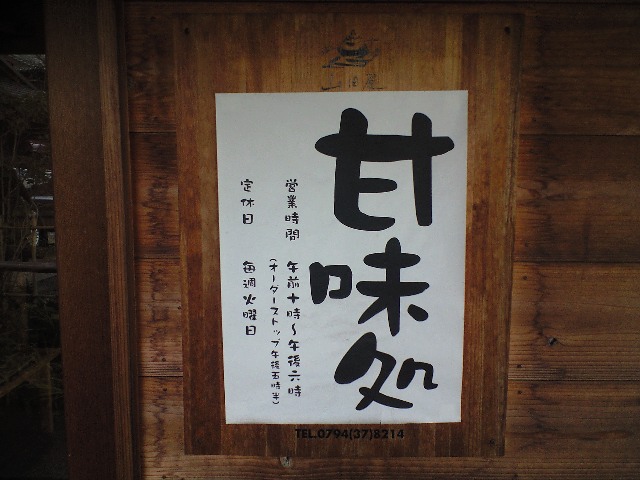 甘味処
営業時間 午前十時〜午後六時
(オーダーストップ午後五時半)
定休日 毎週火曜日
TEL.0794(37)8214